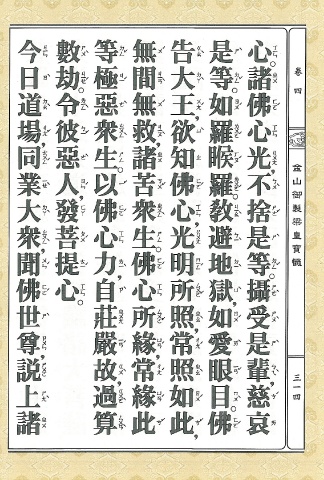 卷四
金山御製梁皇寶懺
三一四
心諸佛心光不捨是等攝受是輩慈哀
是等如羅睺羅教避地獄如愛眼目佛
告大王欲知佛心光明所照常照如此
無間無救諸苦衆生佛心所緣常緣此
等極惡衆生以佛心力自莊嚴故過算
數劫令彼惡人發菩提心
今日道場同業大衆聞佛世尊説上諸